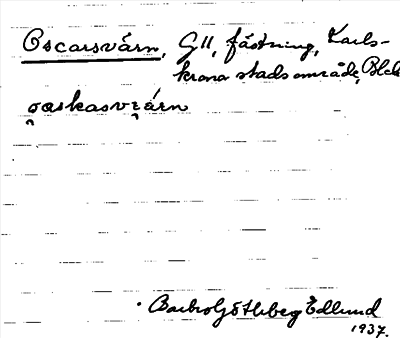 Oscarsvärn, GH, fästning, Karls-
krona stadsområde, Blek
oskasværn
Barbro Götlberg Edlund
1937.